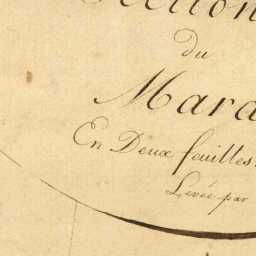 Section
du
Mara
En Deux feuilles.
Levée par